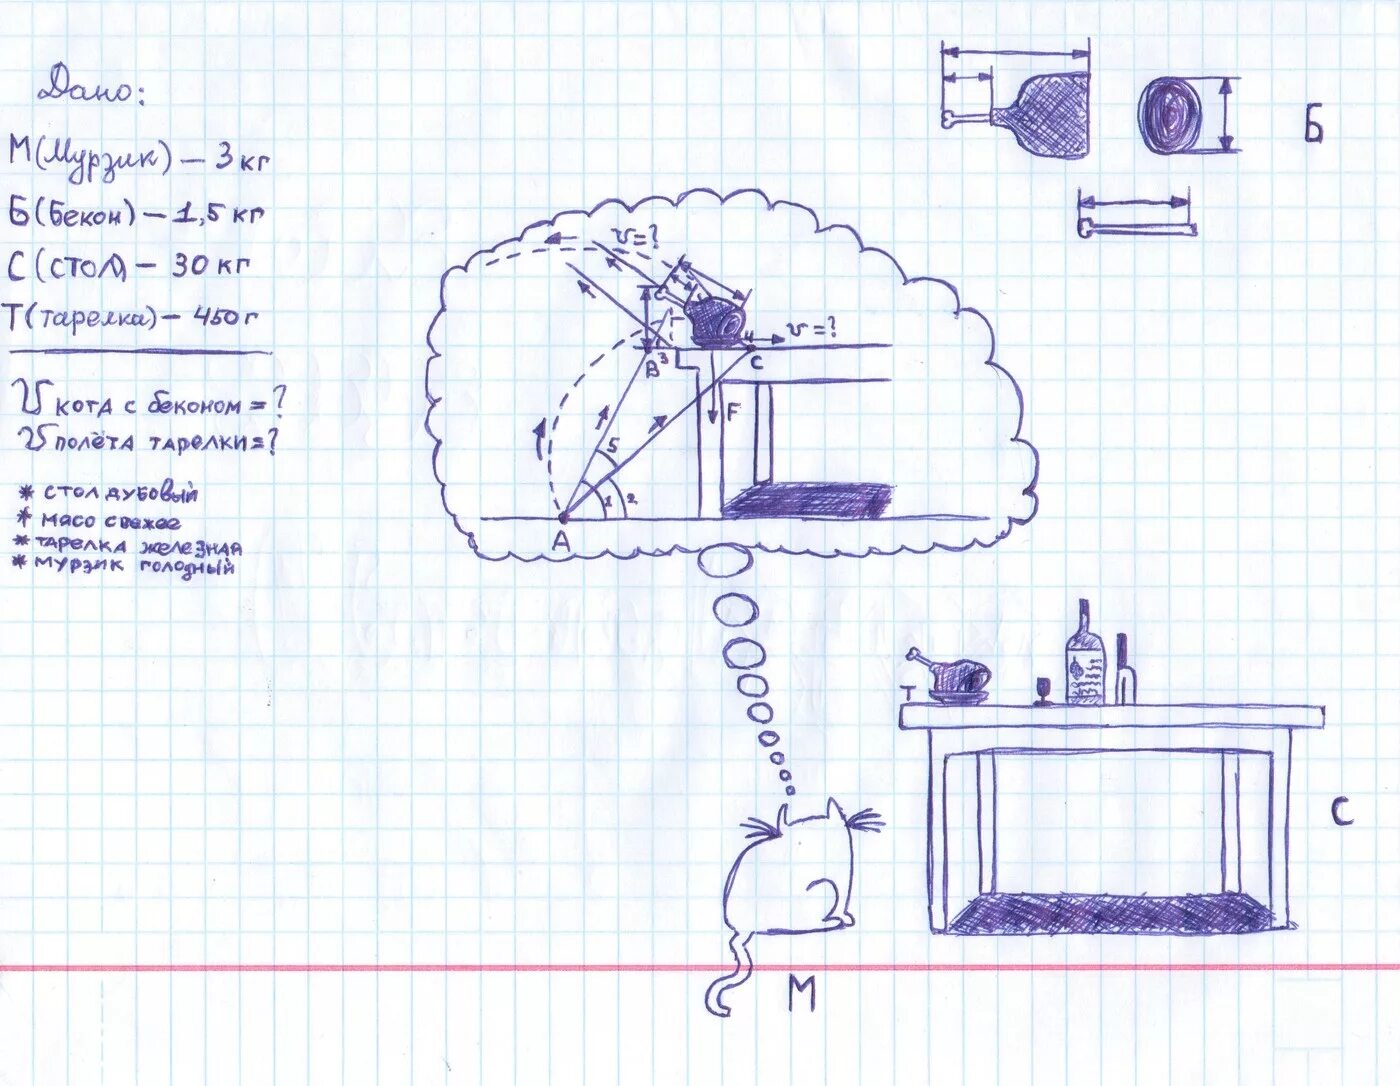 Дано:
М(Мурзик) – 3 кг
Б(Бекон) – 1,5 кг
С(стол) – 30 кг
Т(тарелка) – 450 г
V кота с беконом = ?
V полёта тарелки = ?
* стол дубовый
* мясо свежее
* тарелка железная
* мурзик голодный
Б
v = ?
v = ?
В
3
4
С
F
5
1
2
А
Т
С
М